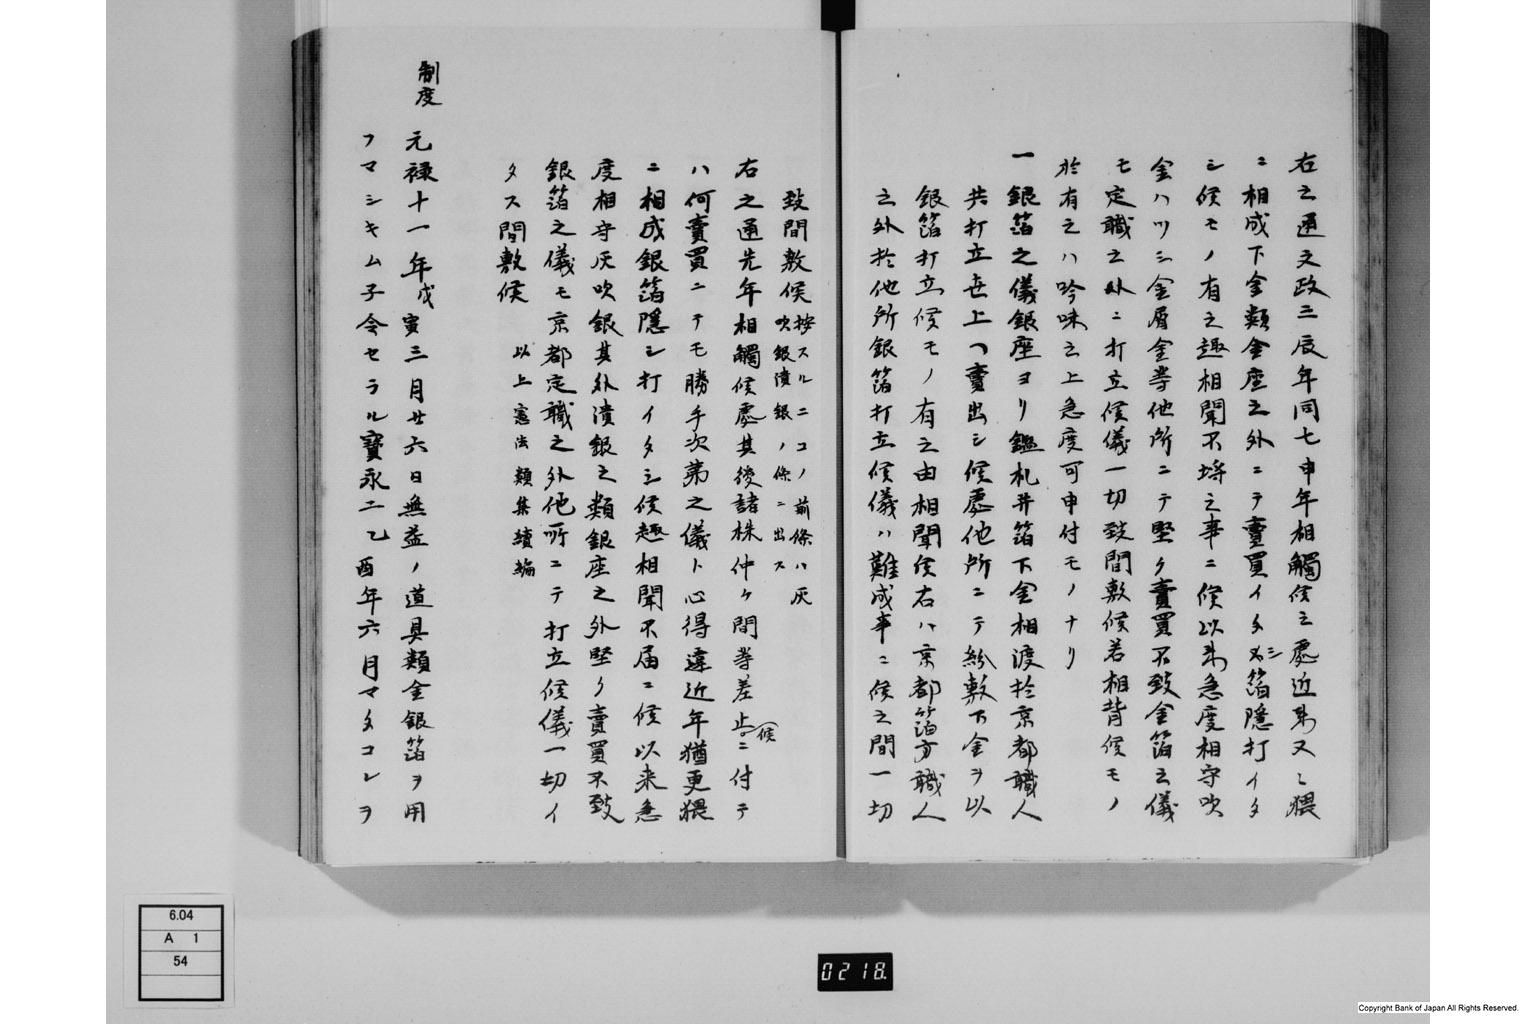 右之通文政三辰年同七申年相觸候之處近来又々猥
ニ相成下金類金座之外ニテ賣買イタシ又ハ箔隠打イタ
シ候モノ有之趣相聞不埒之事ニ候以来急度相守吹
金ハツシ金屑金等他所ニテ堅ク賣買不致金箔之儀
モ定職之外ニ打立候儀一切致間敷候若相背候モノ
於有之ハ吟味之上急度可申付モノナリ
一銀箔之儀銀座ヨリ鑑札并箔下金相渡於京都職人
共打立世上ヘ賣出シ候處他所ニテ紛敷下金ヲ以
銀箔打立候モノ有之由相聞候右ハ京都箔方職人
之外於他所銀箔打立候儀ハ難成事ニ候之間一切
致間敷候
按スルニコノ前條ハ灰
吹銀潰銀ノ條ニ出ス
右之通先年相觸候處其後諸株仲ケ間等差止候ニ付テ
ハ何賣買ニテモ勝手次第之儀ト心得違近年猶更猥
ニ相成銀箔隠シ打イタシ候趣相聞不届ニ候以来急
度相守灰吹銀其外潰銀之類銀座之外堅ク賣買不致
銀箔之儀モ京都定職之外他所ニテ打立候儀一切イ
タス間敷候
以上憲法類集續編
制度
元禄十一年戊寅三月廿六日無益ノ道具類金銀箔ヲ用
フマシキム子令セラル寶永二乙酉年六月マタコレヲ
6.04
A 1
54
0218.
Copyright Bank of Japan All Rights Reserved.